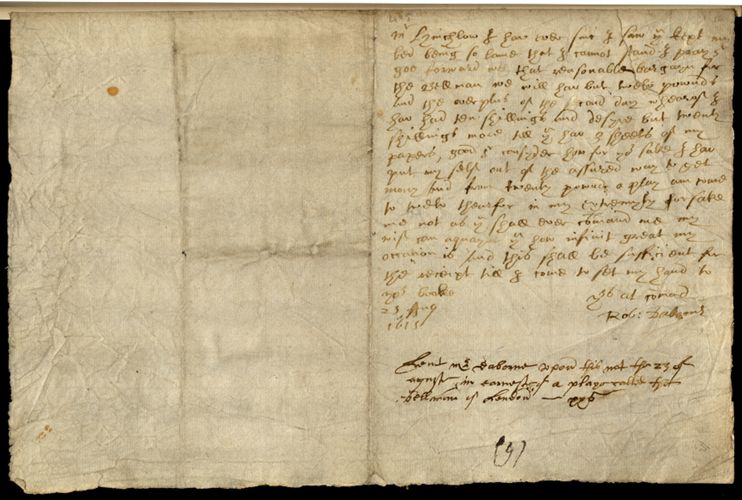 Mr Hynchlow I hav ever sinc I saw yu kept my
bed being so lame that I cannot stand I pray sr
goe forward wth that reasonable bargayn for
the Bellman we will hav but twelv pownds
and the overplus of the second day whearof I
hav had ten shillings and desyre but twenty
shillings more till yu hav 3 sheets of my
papers, good sr consyder how for yor sake I hav
put my self out of the assured way to get
mony and from twenty pownd a play am come
to twelv thearfor in my extremyty forsake
me not as yu shall ever comand me my
wif can aquaynt yu how infinit great my
occation is and this shall be sufficient for
the receipt till I come to set my hand to
yor booke
23 Aug yors at comand
1613 Rob: Daborne
Lent mr daborne vpon this not the 23 of
agust in earneste of a playe called the
bellman of London — xxs
(9)